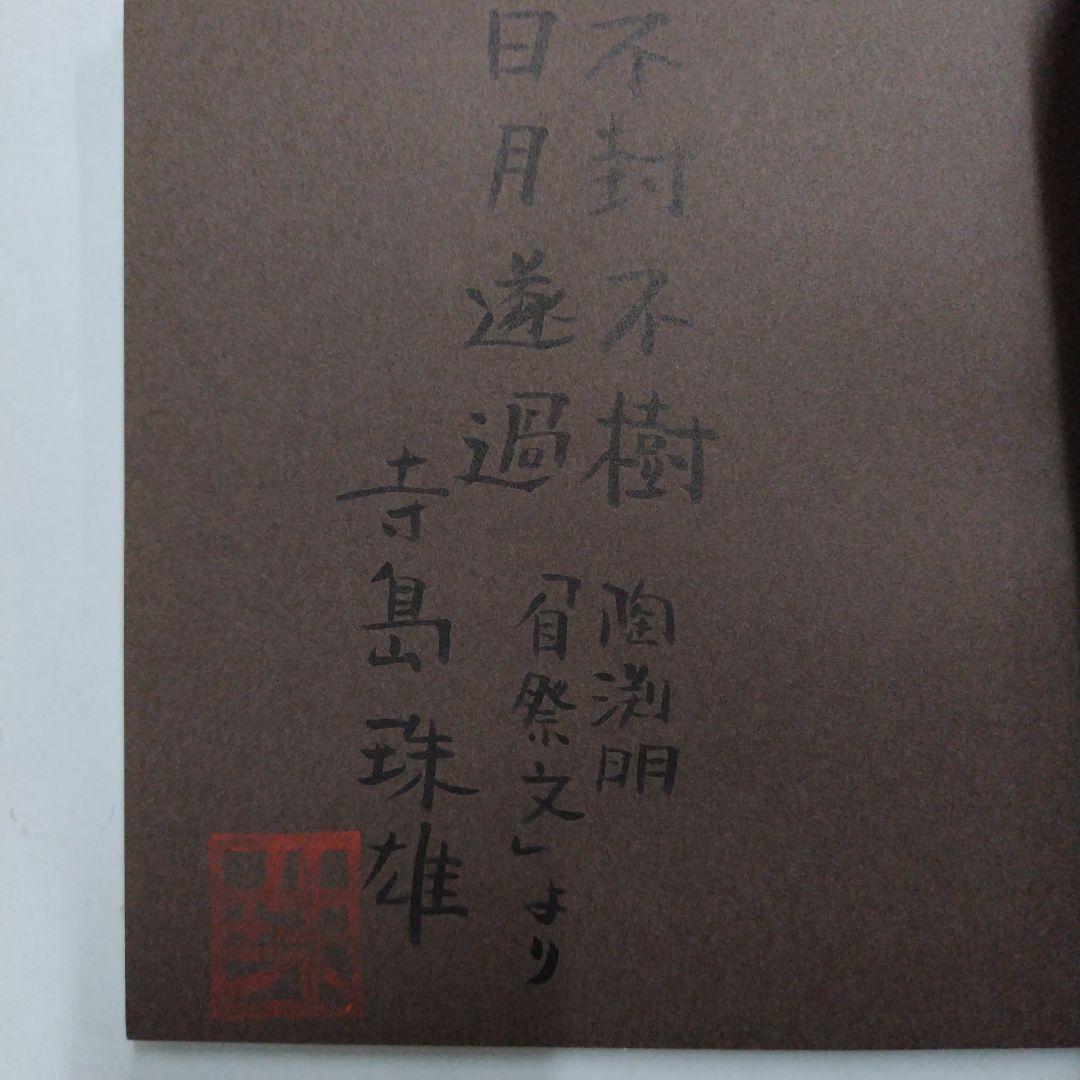 不封不樹
日月遂過
陶渕明
「自祭文」より
寺島珠雄